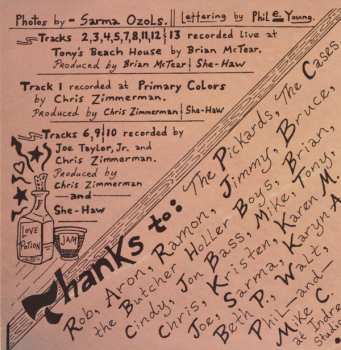 Photos by - Sarma Ozols. || Lettering by Phil e Young.
Tracks 2,3,4,5,7,8,11,12 & 13 recorded live at
Tony's Beach House by Brian McTear.
Produced by Brian McTear & She-Haw
Track 1 recorded at Primary Colors
by Chris Zimmerman.
Produced by Chris Zimmerman & She-Haw
Tracks 6,9 & 10 recorded by
Joe Taylor, Jr. and
Chris Zimmerman.
Produced by
Chris Zimmerman
—and—
She-Haw
LOVE
POTION
JAM
Thanks to: The Pickards, The Cases,
Rob, Aron, Ramon, Jimmy, Bruce,
the Butcher Holler Boys, Brian,
Cindy, Jon Bass, Mike, Tony,
Chris, Kristen, Karen M.
Joe, Sarma, Karyn A.
Beth P., Walt,
Phil —and—
Mike C.
at Indre
Studio